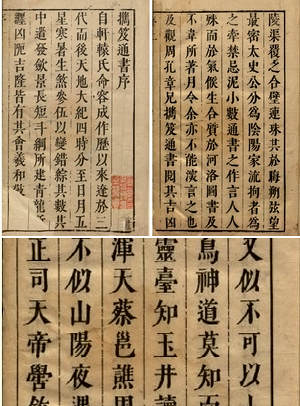 擕笈通書序
自軒轅氏命容成作歷以來逹於三
代而後天地大紀四時分至日月五
星寒暑生煞參伍以變錯綜其數其
中道發斂景長短千綱所建青龍所
躔凶阨吉隆皆有其會義和
陵渠覆之合璧連珠其於晦朔弦望
最密太史公分為陰陽家流拘者為
之牽禁忌泥小數通書之作言人人
殊而於氣候生合質於河洛圖書及
不韋所著月令余亦不能演言之也
及觀周孔章兄擕笈通書閱其吉凶
又似不可以
鳥神道莫知
靈臺知玉井讀
渾天蔡邕譙
不似山陽夜遇
正司天帝